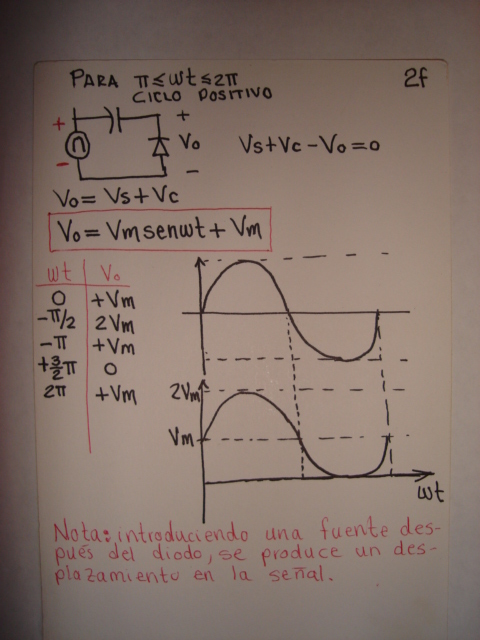 PARA π≤wt≤2π
CICLO POSITIVO
2f
+ +
Vo
- -
Vs+Vc-Vo=0
Vo= Vs+Vc
Vo= Vmsenwt+Vm
wt Vo
0 +Vm
-π/2 2Vm
-π +Vm
+3/2π 0
2π +Vm
2Vm
Vm
wt
Nota: introduciendo una fuente des-
pués del diodo, se produce un des-
plazamiento en la señal.